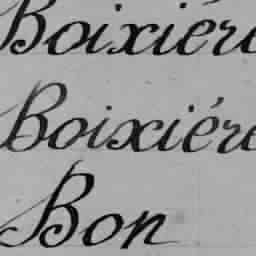 Boixiére
Boixiére
Bon